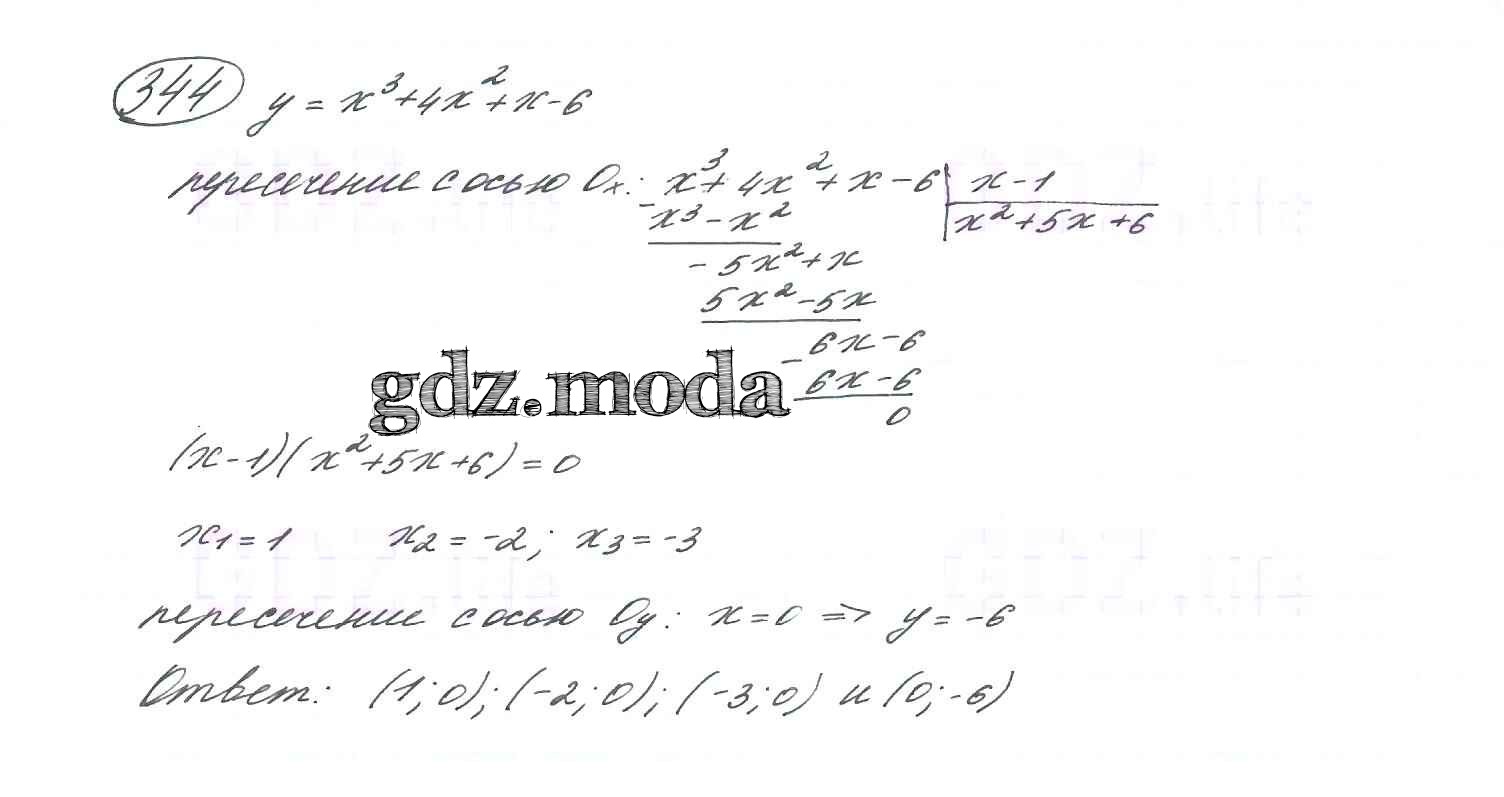 344 y = x³+4x²+x-6
пересечение с осью Ox: x³+4x²+x-6 | x-1
- x³-x² x²+5x+6
- 5x²+x
5x²-5x
- 6x-6
gdz.moda
6x-6
0
(x-1)(x²+5x+6)=0
x₁=1 x₂=-2; x₃=-3
пересечение с осью Oy: x=0 => y=-6
Ответ: (1;0); (-2;0); (-3;0) и (0;-6)